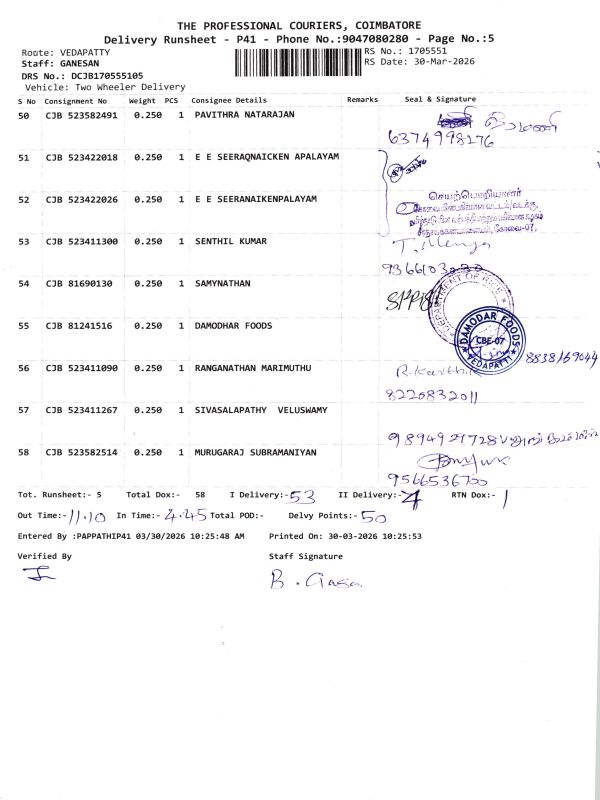 THE PROFESSIONAL COURIERS, COIMBATORE
Delivery Runsheet - P41 - Phone No.:9047080280 - Page No.:5
Route: VEDAPATTY
RS No.: 1705551
Staff: GANESAN
RS Date: 30-Mar-2026
DRS No.: DCJB170555105
Vehicle: Two Wheeler Delivery
S No Consignment No Weight PCS Consignee Details Remarks Seal & Signature
50 CJB 523582491 0.250 1 PAVITHRA NATARAJAN
6374998276
51 CJB 523422018 0.250 1 E E SEERAQNAICKEN APALAYAM
52 CJB 523422026 0.250 1 E E SEERANAIKENPALAYAM
செயற்பொறியாளர்
53 CJB 523411300 0.250 1 SENTHIL KUMAR
54 CJB 81690130 0.250 1 SAMYNATHAN
DEPARTMENT OF
55 CJB 81241516 0.250 1 DAMODHAR FOODS
DAMODAR FOODS
CBE-07
VEDAPATTI
8838169044
56 CJB 523411090 0.250 1 RANGANATHAN MARIMUTHU
R. Karthik
8220832011
57 CJB 523411267 0.250 1 SIVASALAPATHY VELUSWAMY
9894927728
58 CJB 523582514 0.250 1 MURUGARAJ SUBRAMANIYAN
9566536700
Tot. Runsheet:- 5 Total Dox:- 58 I Delivery:- 53 II Delivery:- 4 RTN Dox:- 1
Out Time:- 11.10 In Time:- 4.45 Total POD:- Delvy Points:- 50
Entered By :PAPPATHIP41 03/30/2026 10:25:48 AM Printed On: 30-03-2026 10:25:53
Verified By Staff Signature